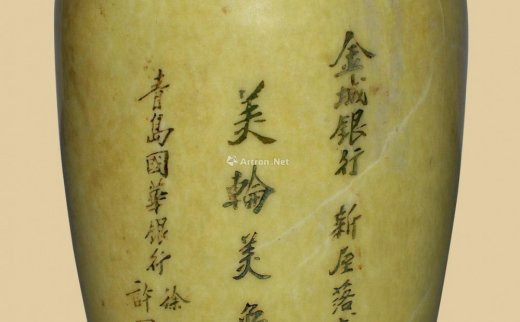 金城銀行 新屋落
美輪美
青島國華銀行 徐
許
Artron.Net